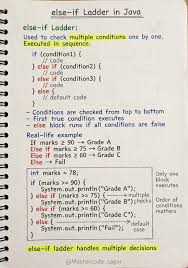 else-if Ladder in Java
else-if Ladder:
Used to check multiple conditions one by one.
Executed in sequence.
if (condition1) {
// code
} else if (condition2) {
// code
} else if (condition3) {
// code
} else {
// default code
}
→ Conditions are checked from top to bottom
→ First true condition executes
→ else block runs if all conditions are false
Real-life example
If marks ≥ 90 → Grade A
Else if marks ≥ 75 → Grade B
Else if marks ≥ 60 → Grade C
Else → Fail
int marks = 78;
if (marks >= 90) {
System.out.println("Grade A");
} else if (marks >= 75) {
System.out.println("Grade B");
} else if (marks >= 60) {
System.out.println("Grade C");
} else {
System.out.println("Fail");
}
multiple
checks
default
case
Only one
block
executes
Order of
conditions
matters
else-if ladder handles multiple decisions
@Mastercode.sagar